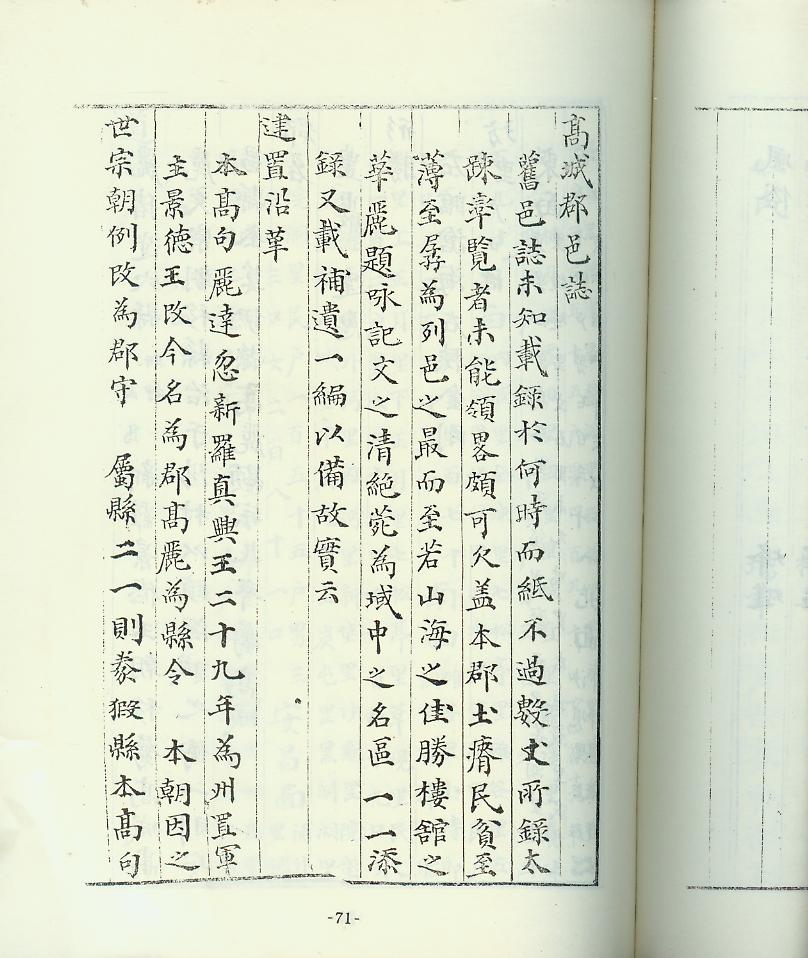 高城郡邑誌
舊邑誌未知載録於何時而紙不過數丈所録太
踈率覽者未能領畧頗可欠盖本郡土瘠民貧至
薄至孱為列邑之最而至若山海之佳勝樓舘之
華麗題咏記文之清絶菀為域中之名區一一添
録又載補遺一編以備故實云
建置沿革
本髙句麗達忽新羅真興王二十九年為州置軍
主景德王改今名為郡髙麗為縣令 本朝因之
世宗朝例改為郡守 屬縣二一則豢猳縣本髙句
-71-